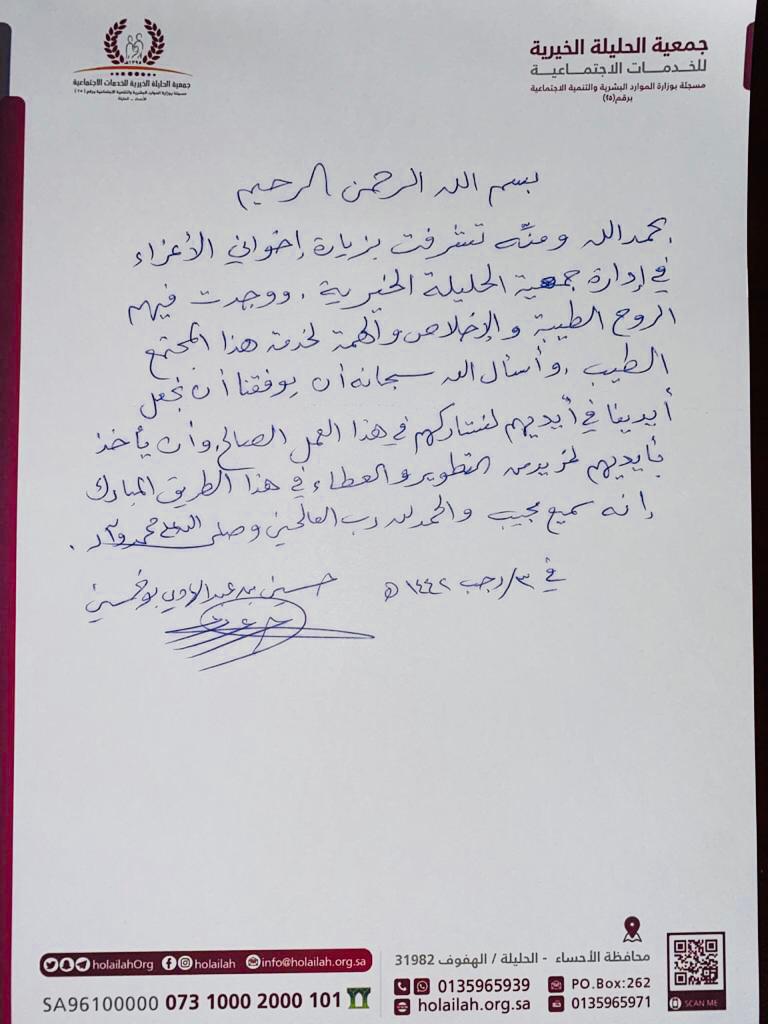 جمعية الحليلة الخيرية
للخدمات الاجتماعية
مسجلة بوزارة الموارد البشرية والتنمية الاجتماعية
برقم (٢٥)
١٣٩٨هـ
جمعية الحليلة الخيرية للخدمات الاجتماعية
مسجلة بوزارة الموارد البشرية والتنمية الاجتماعية برقم ( ٢٥ )
الأحساء - الحليلة
بسم الله الرحمن الرحيم
بحمد الله ومنّه تشرفت بزيارة إخواني الأعزاء
في إدارة جمعية الحليلة الخيرية . ووجدت فيهم
الروح الطيبة والإخلاص والهمة لخدمة هذا المجتمع
الطيب . وأسأل الله سبحانه أن يوفقنا أن نجعل
أيدينا في أيديهم لنشاركهم في هذا العمل الصالح وأن يأخذ
بأيديهم لمزيد من التطوير والعطاء في هذا الطريق المبارك
إنه سميع مجيب والحمد لله رب العالمين وصلى الله على محمد وآله .
في ٣/رجب ١٤٤٢ هـ
حسين بن عبدالهادي بوخمسين
محافظة الأحساء - الحليلة / الهفوف 31982
holailahOrg holailah info@holailah.org.sa
0135965939 PO.Box:262
holailah.org.sa 0135965971
SA96100000 073 1000 2000 101
SCAN ME